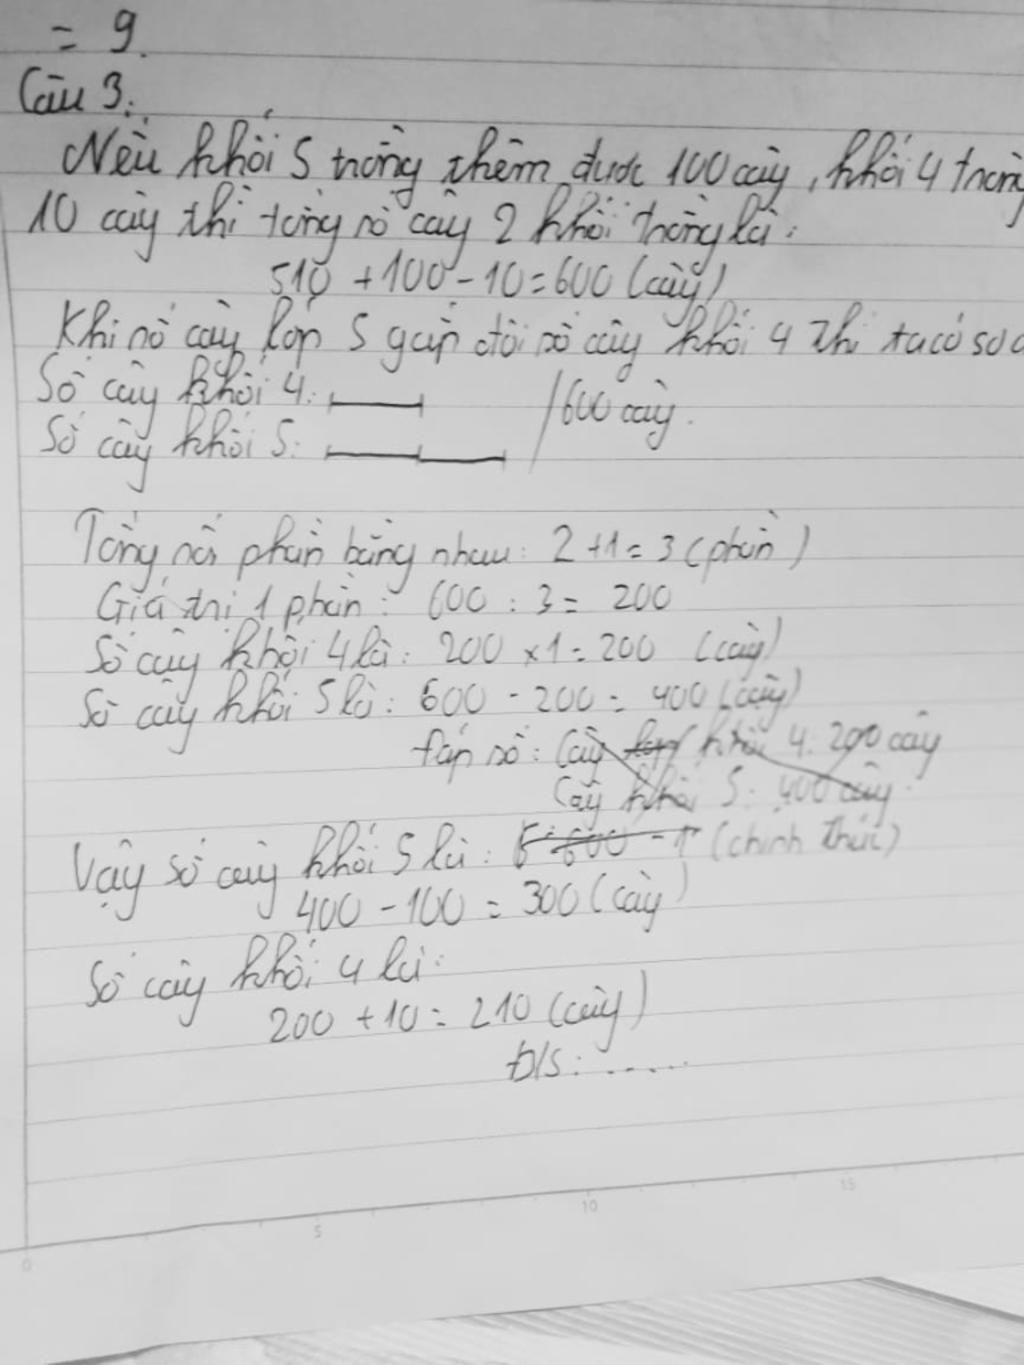 = 9.
Câu 3:
Nếu khối 5 trồng thêm được 100 cây, khối 4 trồng
10 cây thì tổng số cây 2 khối trồng là:
510 + 100 - 10 = 600 (cây)
Khi số cây lớp 5 gấp đôi số cây khối 4 thì ta có sơ
Số cây khối 4:
600 cây.
Số cây khối 5:
Tổng số phần bằng nhau: 2 + 1 = 3 (phần)
Giá trị 1 phần: 600 : 3 = 200
Số cây khối 4 là: 200 x 1 = 200 (cây)
Số cây khối 5 là: 600 - 200 = 400 (cây)
Đáp số: Cây lớp khối 4: 200 cây
Cây khối 5: 400 cây.
Vậy số cây khối 5 là: 600 - 1 (chính thức)
400 - 100 = 300 (cây)
Số cây khối 4 là:
200 + 10 = 210 (cây)
Đ/S: .....
0 5 10 15